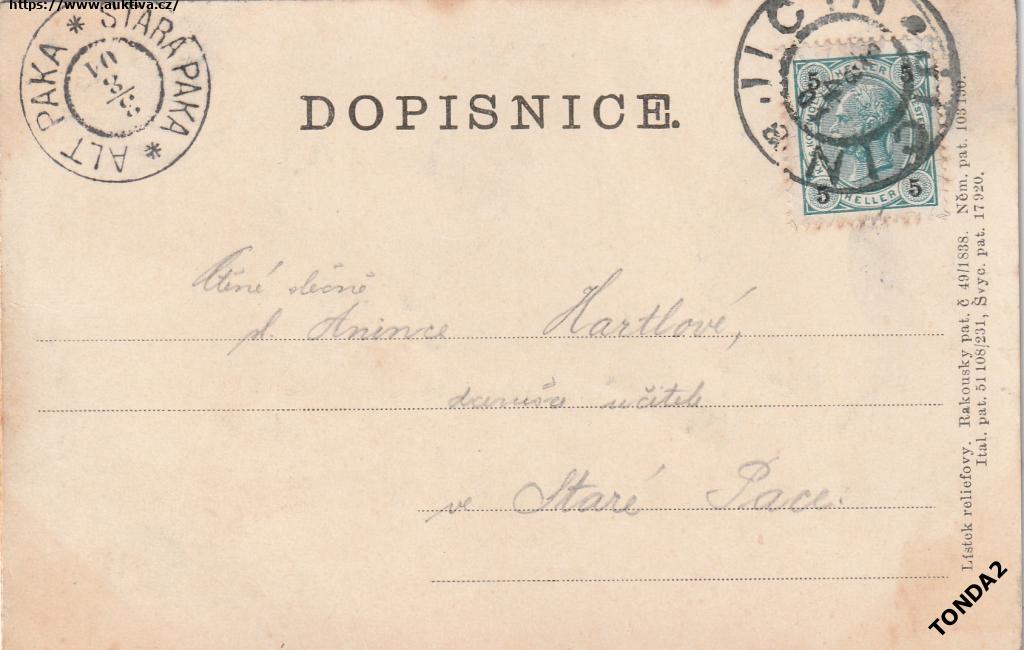 https://www.auktiva.cz/
ALT PAKA * STARÁ PAKA *
2/3 01
JIČÍN
5 HELLER 5
DOPISNICE.
Ctěné slečně
sl. Anince Hartlové,
učitele
ve Staré Pace.
Lístek reliefovy. Rakousky pat. č 49/1838. Něm. pat. 103190.
Ital. pat. 51108/231, Švyc. pat. 17920.
TONDA2